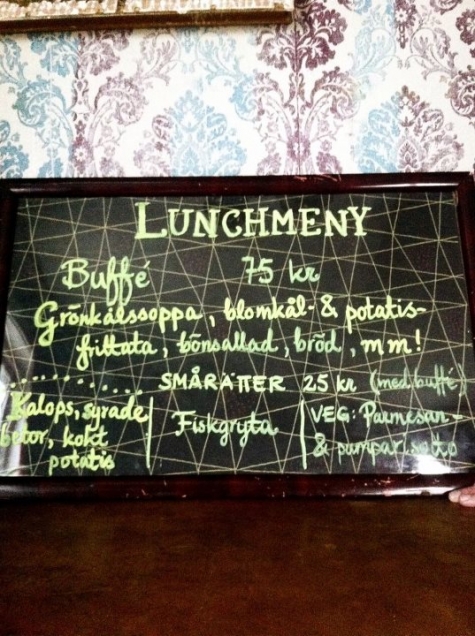 LUNCHMENY
Buffé 75 kr
Grönkålssoppa, blomkål- & potatis-
frittata, bönsallad, bröd, mm!
SMÅRÄTTER 25 kr (med buffé)
Kalops, syrade
betor, kokt
potatis
Fiskgryta
VEG: Parmesan-
& pumparisotto